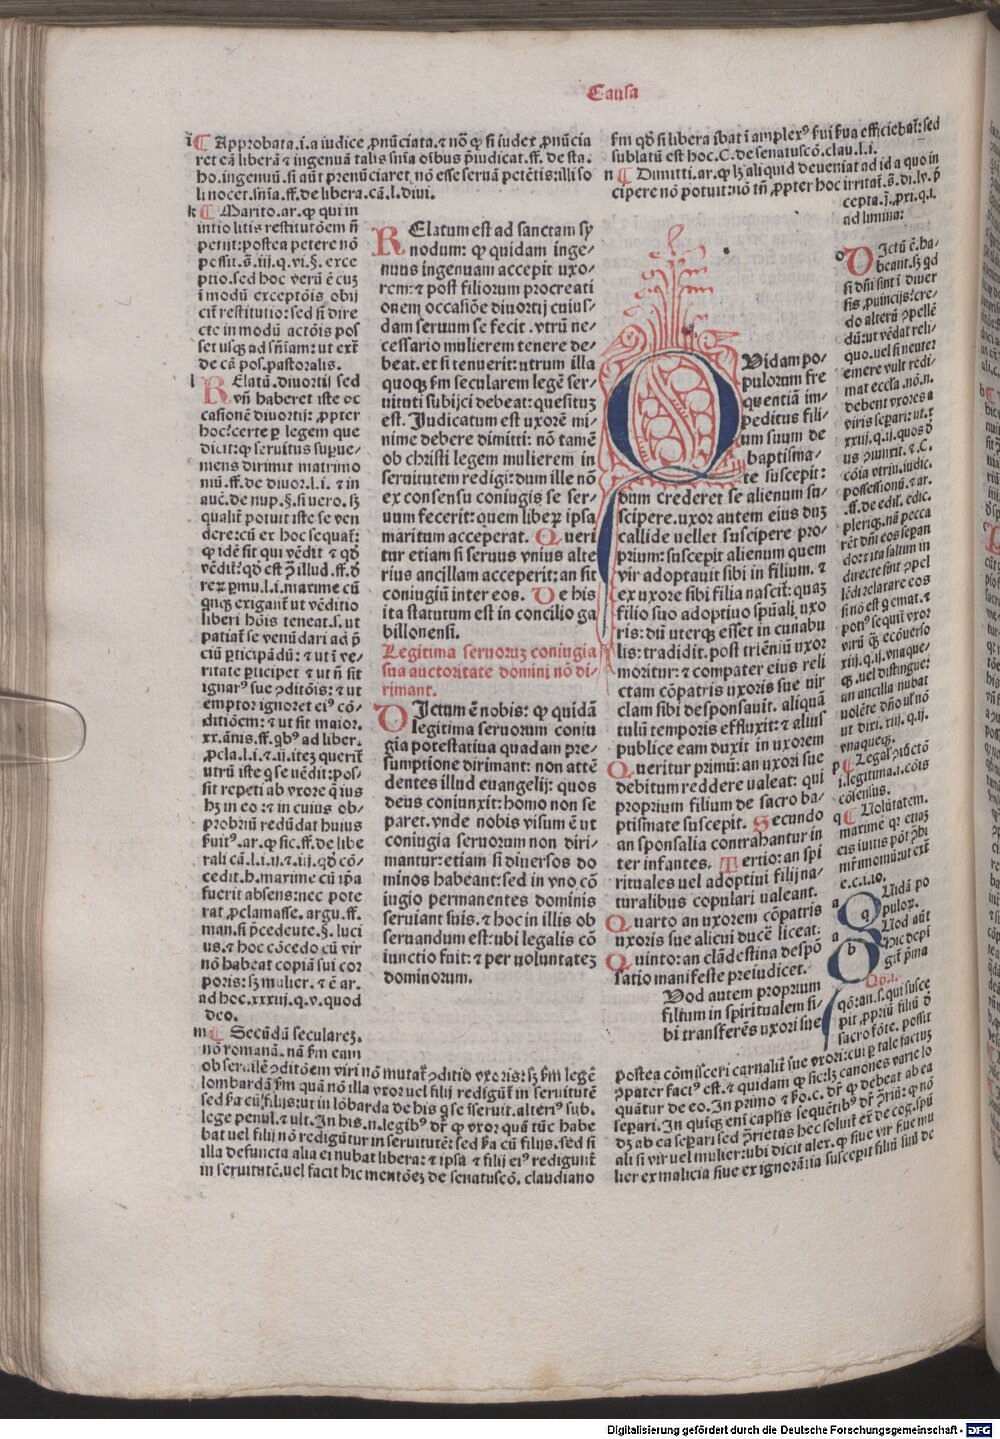 Causa
i ¶ Approbata.i.a iudice ꝓnũciata.⁊ nõ ꝙ si iudex ꝓnũcia
ret eã liberã ⁊ ingenuã talis snĩa oĩbus p̃iudicat.ff.de sta.
ho.ingenuũ.si aũt prenũciaret nõ esse seruã petẽtis:illi so
li nocet.snĩa.ff.de libera.cã.l.diui.
k ¶ Marito.ar.ꝙ qui in
intio litis restitutõem ñ
petijt:postea petere nõ
possit.s̃.iij.q.vi.§.exce
ptio.sed hoc verũ ẽ cuz
i modũ exceptõis obij
cit̃ restitutio:sed si dire
cte in modũ actõis pos
set usqꝫ ad sñiam:ut ext̃
de cã pos.pastoralis.
l Relatũ.diuortij sed
vñ haberet iste oc
casionẽ diuortij:ꝓpter
hoc:certe ꝑ legem que
dicit:ꝙ seruitus supue-
niens dirimit matrimo
niũ.ff.de diuor.l.i.⁊ in
auc̃.de nup.§.si uero.sꝫ
qualit̃ potuit iste se ven
dere:cũ ex hoc sequat̃:
ꝙ idẽ sit qui vẽdit ⁊ qd̃
vẽdit̃:qd̃ est ꝯ̃ illud.ff.d̃
reꝝ ꝑmu.l.i.maxime cũ
qnqꝫ exigant̃ ut vẽditio
liberi hõis teneat.s.ut
patiat̃ se venũdari ad p̃
ciũ ꝑticipãdũ:⁊ ut i ve-
ritate ꝑticipet ⁊ ut ñ sit
ignarꝰ sue ꝯditõis:⁊ ut
emptor ignoret eiꝰ cõ-
ditiõem:⁊ ut sit maior.
xx.ãnis.ff.qbꝰ ad liber.
ꝓcla.l.i.⁊.ij.iteꝫ querit̃
utrũ iste q se uẽdit:pos-
sit repeti ab vxore q̃ ius
hꝫ in eo:⁊ in cuius ob-
probriũ redũdat huius
s̃uitꝰ.ar.ꝙ sic.ff.de libe
rali cã.l.i.ij.⁊.iij.qd̃ cõ-
cedit.h.maxime cũ ip̃a
fuerit absens:nec pote
rat ꝓclamasse.argu.ff.
man.si p̃cedeute.§.luci
us.⁊ hoc cõcedo cũ vir
nõ habeat copiã sui cor
poris:sꝫ mulier.⁊ ẽ ar.
ad hoc.xxxij.q.v.quod
deo.
m ¶ Secũdũ seculareꝫ.
nõ romanã.nã s̃m eam
ob seruilẽ ꝯditõem viri nõ mutat̃ ꝯditio vxoris:sꝫ s̃m legẽ
lombardã s̃m quã nõ illa vxor uel filij redigũt̃ in seruitutẽ
sed s̃a cũ filijs:ut in lõbarda de his q se iseruit.alteriꝰ sub.
lege penul.⁊ ult.In his.n.legibꝰ dr̃ ꝙ vxor quã tũc habe
bat uel filij nõ redigũtur in seruitutẽ:sed s̃a cũ filijs.sed si
illa defuncta alia ei nubat libera:⁊ ipsa ⁊ filij eiꝰ redigunt̃
in seruitutẽ.uel facit hic mentõeꝫ de senatuscõ.claudiano
Relatum est ad sanctam sy
nodum: ꝙ quidam inge-
nuus ingenuam accepit uxo-
rem:⁊ post filiorum procreati
onem occasiõe diuortij cuius-
dam seruum se fecit.vtrũ ne-
cessario mulierem tenere de-
beat.et si tenuerit:utrum illa
quoqꝫ s̃m secularem legẽ ser-
uituti subijci debeat:quesituꝫ
est.Judicatum est uxorẽ mi-
nime debere dimitti: nõ tamẽ
ob christi legem mulierem in
seruitutem redigi:dum ille nõ
ex consensu coniugis se ser-
uum fecerit:quem liberꝫ ipsa
maritum acceperat. Queri
tur etiam si seruus vnius alte
rius ancillam acceperit:an sit
coniugiũ inter eos. De his
ita statutum est in concilio ga
billonensi.
Legitima seruoruꝫ coniugia
sua auctoritate domini nõ di-
rimant.
Dictum ẽ nobis: ꝙ quidã
legitima seruorum coniu
gia potestatiua quadam pre-
sumptione dirimant: non attẽ
dentes illud euangelij: quos
deus coniunxit:homo non se
paret.vnde nobis visum ẽ ut
coniugia seruorum non diri-
mantur:etiam si diuersos do
minos habeant:sed in vno cõ
iugio permanentes dominis
seruiant suis.⁊ hoc in illis ob
seruandum est:ubi legalis cõ
iunctio fuit:⁊ per uoluntateꝫ
dominorum.
s̃m qd̃ si libera ibat i amplexꝰ s̃ui s̃ua efficiebat̃:sed
sublatũ est hoc.C.de senatuscõ.clau.l.i.
n ¶ Dimitti.ar.ꝙ lꝫ aliquid deueniat ad id a quo in
cipere nõ potuit:nõ tñ ꝓpter hoc irritat̃.s̃.di.lv.p̃
cepta.j̃.ꝓxi.q.i.
ad limina:
Quidam po-
pulorum fre
quentiã im-
peditus fili-
um suum de
baptisma-
te suscepit:
dum crederet se alienum su-
scipere.uxor autem eius duꝫ
callide uellet suscipere pro-
prium:suscepit alienum quem
vir adoptauit sibi in filium.⁊
ex uxore sibi filia nascit̃:quaꝫ
filio suo adoptiuo spũali uxo
ris:dũ uterqꝫ esset in cunabu
lis:tradidit.post triẽniũ uxor
moritur:⁊ compater eius reli
ctam cõpatris uxoris sue vir
clam sibi desponsauit. aliquã
tulũ temporis effluxit:⁊ alius
publice eam duxit in uxorem
Queritur primũ:an uxori sue
debitum reddere ualeat: qui
proprium filium de sacro ba-
ptismate suscepit. Secundo
an sponsalia contrahantur in
ter infantes. Tertio:an spi
rituales uel adoptiui filij na-
turalibus copulari ualeant.
Quarto an uxorem cõpatris
uxoris sue alicui ducẽ liceat.
Quinto:an clãdestina despõ
satio manifeste preiudicet.
Vod autem proprium
filium in spiritualem si-
bi transferẽs uxori sue
o Dictũ ẽ.ha-
beant.sꝫ qd
si dñi sint i diuer
sis ꝓuincijs:cre-
do alterũ ꝯpellẽ
dũ:ut vẽdat reli-
quo.uel si neuter
emere vult redi-
mat eccl̃a.nõ.n.
debent vxores a
viris separi:ut.x
xxij.q.ij.quos d̃
us ꝯiunxit.⁊.C.
cõia vtriu.iudic.
possessionũ.⁊ ar.
.ff.de edil.edic.
pleriqꝫ.nã pecca
rẽt dñi eos sepan
do:ita saltim in
directe sint ꝯpel
lẽdi relaxare eos
si nõ est qͥ emat.⁊
potiꝰ sequit̃ vxor
virũ qꝫ ecõuerso
xiij.q.ij.vnaque-
qꝫ.uel distingue:
an ancilla nubat
uolẽte dño ul̃ nõ
ut dixi.xiij.q.ij.
vnaqueqꝫ.
p ¶ Legal̃ ꝯiũctõ
i.legitima.i.cõis
cõlenius.
q ¶ Volũtatem.
maxime qꝛ cuꝫ
eis iuitis põt ꝯ̃bi
mr̃imoniũ:ut ext̃
e.c.i.io.
a Quidã po
puloꝝ.
a Quod aũt
b hic depi
git̃ p̃ma
Qõ.i.
qõ:an.s.qui susce
pit ꝓpriũ filiũ d̃
sacro fõte.possit
postea cõmisceri carnalit̃ sue vxori:cui ꝑ tale factuꝫ
ꝯpater factꝰ est.⁊ quidam ꝙ sic:lꝫ canones varie lo
quãtur de eo.In primo ⁊ s̃o.c.dr̃ ꝙ debeat ab ea
separi.In quiqꝫ eni capl̃is sequẽtibꝰ dr̃ ꝯ̃riũ:ꝙ nõ
dꝫ ab ea separi sed ꝯ̃rietas hec soluit̃ ex̃ de cog.spũ
ali si vir uel mulier:ubi dicit alex.ꝙ siue vir siue mu
lier ex malicia siue ex ignorãtia susceperit filiũ suũ de
Digitalisierung gefördert durch die Deutsche Forschungsgemeinschaft - DFG